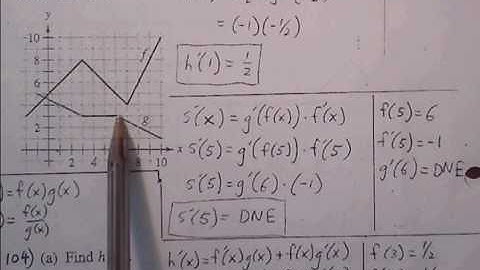 = (-1)(-½)
h'(1) = ½
y
10
8
6
f
4
2
g
2 4 10 x
s'(x) = g'(f(x)) · f'(x)
s'(5) = g'(f(5)) · f'(5)
s'(5) = g'(6) · (-1)
s'(5) = DNE
f(5) = 6
f'(5) = -1
g'(6) = DNE
) = f(x)g(x)
) = f(x)/g(x)
104) (a) Find h
h'(x) = f'(x)g(x) + f(x)g'(x)
f(3) = ½